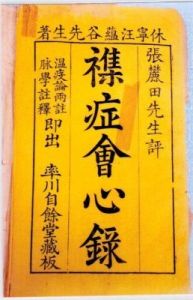 休寧汪蘊谷先生著
張麓田先生評
襍症會心錄
溫疫論兩註
脉學註釋
即出
率川自餘堂藏板